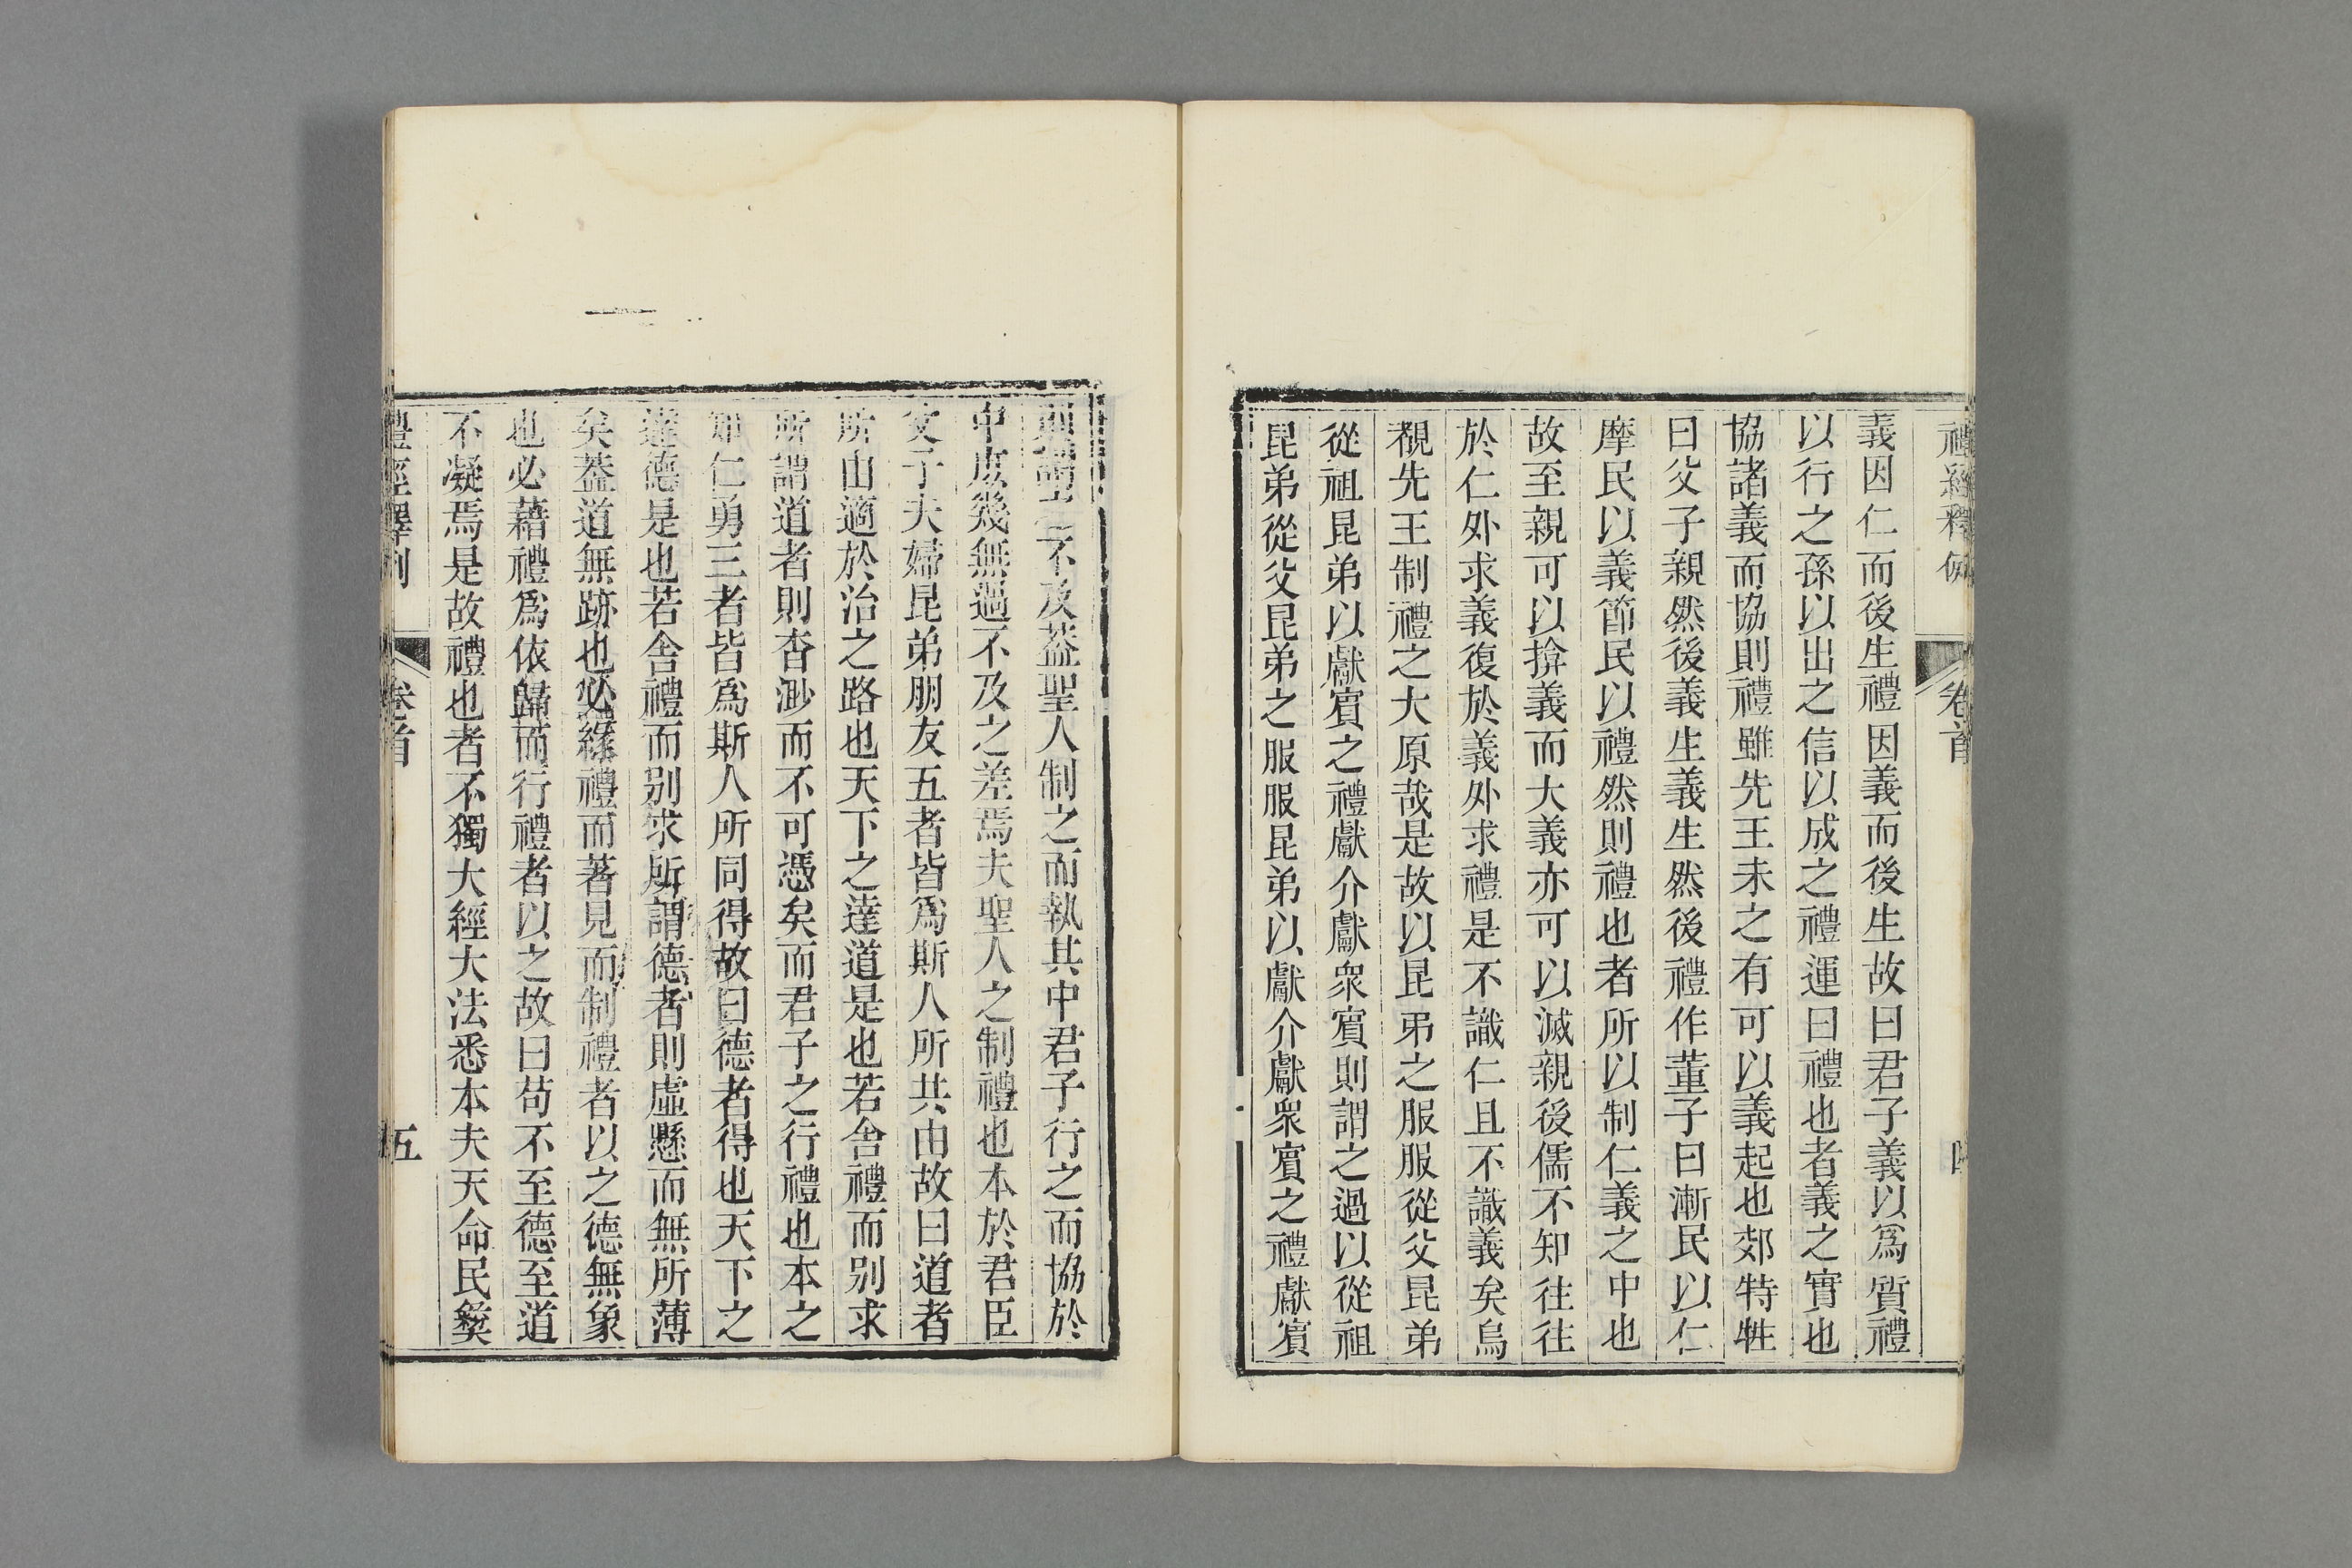 禮經釋例 卷首
義因仁而後生禮因義而後生故曰君子義以爲質禮
以行之孫以出之信以成之禮運曰禮也者義之實也
協諸義而協則禮雖先王未之有可以義起也郊特牲
曰父子親然後義生義生然後禮作董子曰漸民以仁
摩民以義節民以禮然則禮也者所以制仁義之中也
故至親可以揜義而大義亦可以滅親後儒不知往往
於仁外求義復於義外求禮是不識仁且不識義矣烏
覩先王制禮之大原哉是故以昆弟之服服從父昆弟
從祖昆弟以獻賓之禮獻介獻衆賓則謂之過以從祖
昆弟從父昆弟之服服昆弟以獻介獻衆賓之禮獻賓
則謂之不及葢聖人制之而執其中君子行之而協於
中庶幾無過不及之差焉夫聖人之制禮也本於君臣
父子夫婦昆弟朋友五者皆爲斯人所共由故曰道者
所由適於治之路也天下之達道是也若舍禮而別求
所謂道者則杳渺而不可憑矣而君子之行禮也本之
知仁勇三者皆爲斯人所同得故曰德者得也天下之
達德是也若舍禮而別求所謂德者則虛懸而無所薄
矣葢道無跡也必緣禮而著見而制禮者以之德無象
也必藉禮爲依歸而行禮者以之故曰苟不至德至道
不凝焉是故禮也者不獨大經大法悉本夫天命民彝
禮經釋例 卷首 五